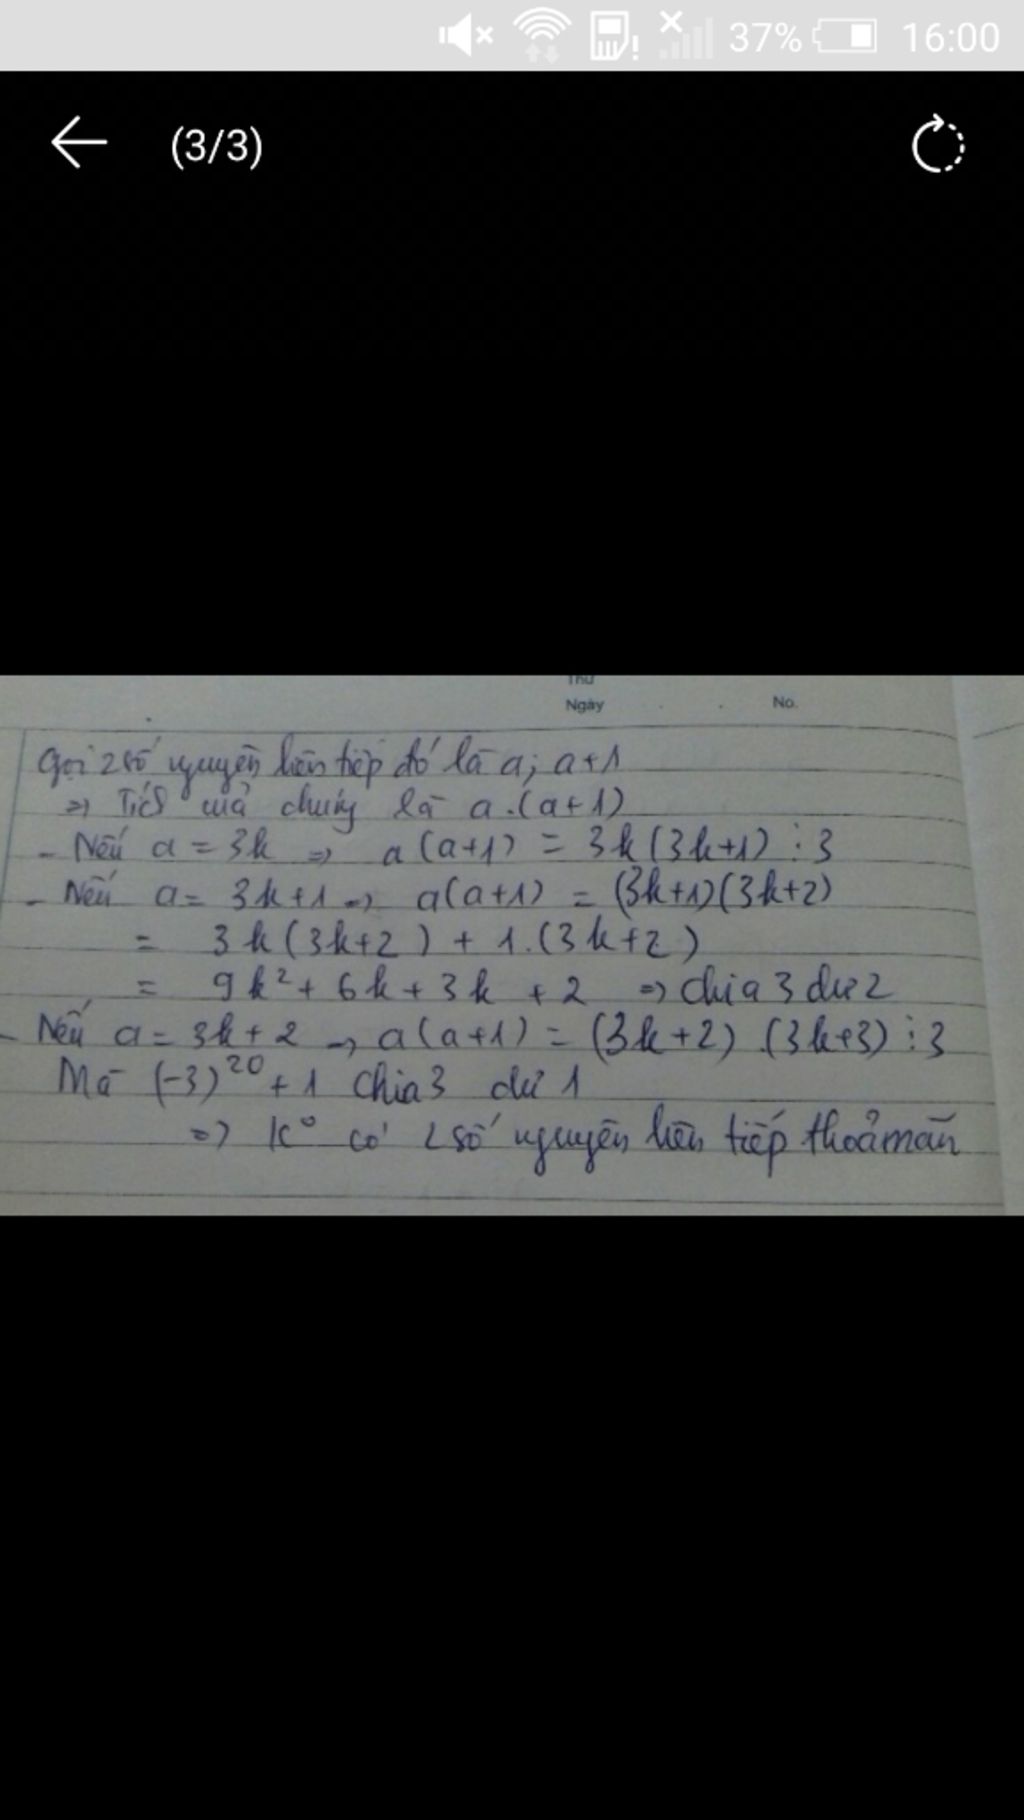 37% 16:00
(3/3)
Thứ
Ngày No.
Gọi 2 số nguyên liên tiếp đó là a; a+1
=> Tích của chúng là a.(a+1)
- Nếu a = 3k => a(a+1) = 3k(3k+1) ⋮ 3
- Nếu a = 3k+1 => a(a+1) = (3k+1)(3k+2)
= 3k(3k+2) + 1.(3k+2)
= 9k² + 6k + 3k + 2 => chia 3 dư 2
- Nếu a = 3k+2 => a(a+1) = (3k+2).(3k+3) ⋮ 3
Mà (-3)²⁰ + 1 chia 3 dư 1
=> K° có 2 số nguyên liên tiếp thoả mãn